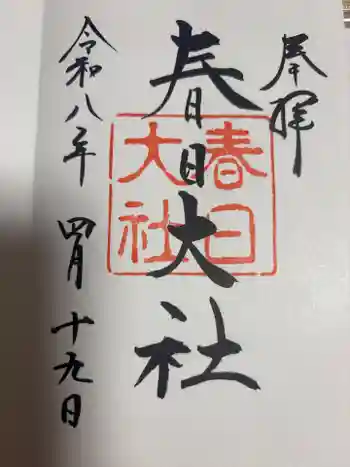 奉拝
春日大社
春日
大社
令和八年 四月 十九日